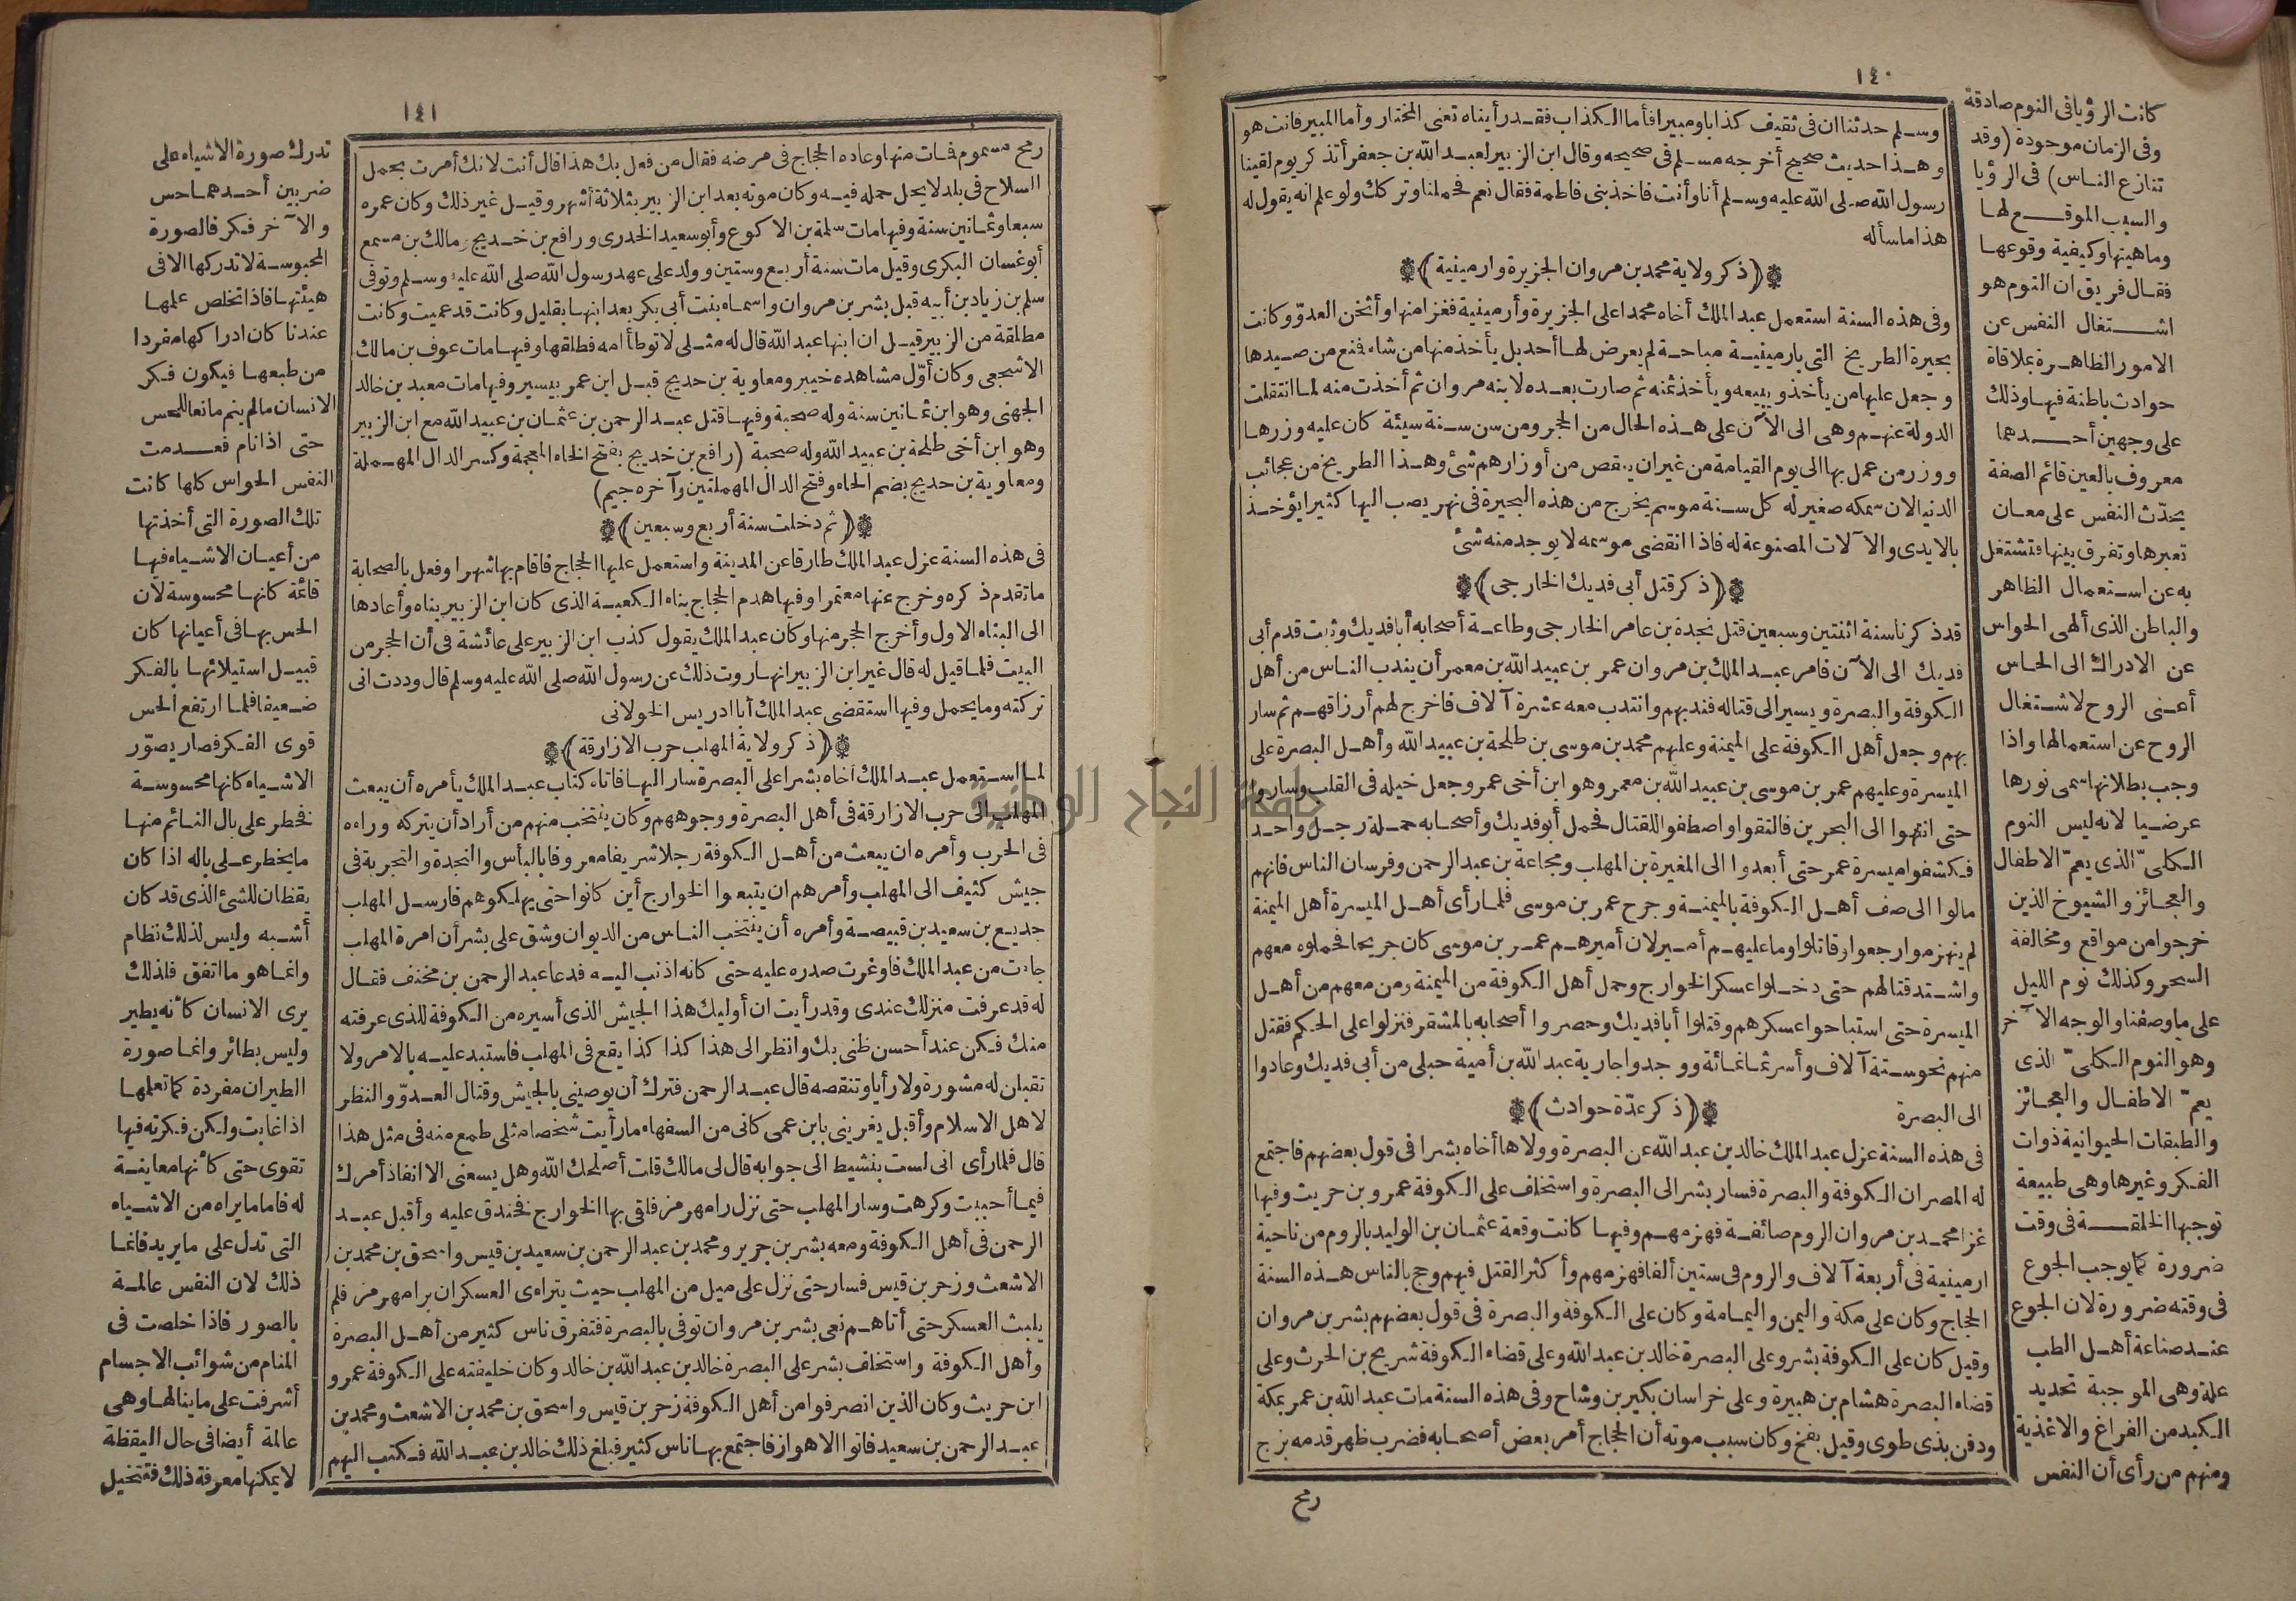 ١٤٠
وسلم حدثنا ان فى ثقيف كذابا ومبيرا فأما الكذاب فقد رأيناه تعنى المختار وأما المبير فانت هو
وهذا حديث صحيح أخرجه مسلم فى صحيحه وقال ابن الزبير لعبد الله بن جعفر أتذكر يوم لقينا
رسول الله صلى الله عليه وسلم أنا وأنت فاخذ بنى فاطمة فقال نعم فحملنا وتركك ولو علم انه يقول له
هذا ما سأله
﴿ذكر ولاية محمد بن مروان الجزيرة وارمينية﴾
وفى هذه السنة استعمل عبد الملك أخاه محمدا على الجزيرة وأرمينية فغزا منها وأثخن العدوّ وكانت
بحيرة الطريخ التى بارمينية مباحة لم يعرض لها أحد بل يأخذ منها من شاء فنع من صيدها
وجعل عليها من يأخذ ويبيعه ويأخذ ثمنه ثم صارت بعده لابنه مروان ثم أخذت منه لما انتقلت
الدولة عنهم وهى الى الآن على هذه الحال من الحجر ومن سن سنة سيئة كان عليه وزرها
ووزر من عمل بها الى يوم القيامة من غير ان ينقص من أوزارهم شئ وهذا الطريخ من عجائب
الدنيا لان سمكه صغير له كل سنة موسم يخرج من هذه البحيرة فى نهر يصب اليها كثيرا يؤخذ
بالايدى والآلات المصنوعة له فاذا انقضى موسمه لا يوجد منه شئ
﴿ذكر قتل أبى فديك الخارجى﴾
قد ذكرنا سنة اثنتين وسبعين قتل نجدة بن عامر الخارجى وطاعة أصحابه أبا فديك وثبت قدم أبى
فديك الى الآن فامر عبد الملك بن مروان عمر بن عبيد الله بن معمر أن يندب الناس من أهل
الكوفة والبصرة ويسير الى قتاله فندبهم وانتدب معه عشرة آلاف فاخرج لهم أرزاقهم ثم سار
بهم وجعل أهل الكوفة على الميمنة وعليهم محمد بن موسى بن طلحة بن عبيد الله وأهل البصرة على
الميسرة وعليهم عمر بن موسى بن عبيد الله بن معمر وهو ابن أخى عمر وجعل خيله فى القلب وساروا
حتى انتهوا الى البحرين فالتقوا واصطفوا للقتال فحمل أبو فديك وأصحابه حملة رجل واحد
فكشفوا ميسرة عمر حتى أبعدوا الى المغيرة بن المهلب ومجاعة بن عبد الرحمن وفرسان الناس فانهم
مالوا الى صف أهل الكوفة بالميمنة وجرح عمر بن موسى فلما رأى أهل الميسرة أهل الميمنة
لم ينهزموا رجعوا وقاتلوا وما عليهم أمير لان أميرهم عمر بن موسى كان جريحا فحملوه معهم
واشتد قتالهم حتى دخلوا عسكر الخوارج وحمل أهل الكوفة من الميمنة ومن معهم من أهل
الميسرة حتى استباحوا عسكرهم وقتلوا أبا فديك وحصروا أصحابه بالمشقر فنزلوا على الحكم فقتل
منهم نحو ستة آلاف وأسر ثمانمائة ووجدوا جارية عبد الله بن أمية حبلى من أبى فديك وعادوا
الى البصرة ﴿ذكر عدّة حوادث﴾
فى هذه السنة عزل عبد الملك خالد بن عبد الله عن البصرة وولاها أخاه بشرا فى قول بعضهم فاجتمع
له المصران الكوفة والبصرة فسار بشر الى البصرة واستخلف على الكوفة عمرو بن حريث وفيها
غزا محمد بن مروان الروم صائفة فهزمهم وفيها كانت وقعة عثمان بن الوليد بالروم من ناحية
ارمينية فى أربعة آلاف والروم فى ستين ألفا فهزمهم وأكثر القتل فيهم وحج بالناس هذه السنة
الحجاج وكان على مكة واليمن واليمامة وكان على الكوفة والبصرة فى قول بعضهم بشر بن مروان
وقيل كان على الكوفة بشر وعلى البصرة خالد بن عبد الله وعلى قضاء الكوفة شريح بن الحرث وعلى
قضاء البصرة هشام بن هبيرة وعلى خراسان بكير بن وشاح وفى هذه السنة مات عبد الله بن عمر بمكة
ودفن بذى طوى وقيل بفخ وكان سبب موته أن الحجاج أمر بعض أصحابه فضرب ظهر قدمه بزج
رمح
كانت الرؤيا فى النوم صادقة
وفى الزمان موجودة (وقد
تنازع الناس) فى الرؤيا
والسبب الموقع لها
وماهيتها وكيفية وقوعها
فقال فريق ان النوم هو
اشتغال النفس عن
الامور الظاهرة بملاقاة
حوادث باطنة فيها وذلك
على وجهين أحدهما
معروف بالعين قائم الصفة
يحدّث النفس على معان
تعبرها وتفرق بينها فتشتغل
به عن استعمال الظاهر
والباطن الذى ألهى الحواس
عن الادراك الى الحاس
أعنى الروح لاشتغال
الروح عن استعمالها واذا
وجب بطلانها سمى نورها
عرضيا لانه ليس النوم
الكلىّ الذى يعمّ الاطفال
والعجائز والشيوخ الذين
خرجوا من مواقع ومخالفة
السحر وكذلك نوم الليل
على ما وصفنا والوجه الآخر
وهو النوم الكلىّ الذى
يعمّ الاطفال والعجائز
والطبقات الحيوانية ذوات
الفكر وغيرها وهى طبيعة
توجبها الخلقة فى وقت
ضرورة كما يوجب الجوع
فى وقته ضرورة لان الجوع
عند صناعة أهل الطب
علة وهى الموجبة تحديد
الكبد من الفراغ والاغذية
ومنهم من رأى أن النفس
١٤١
رمح مسموم فمات منها وعاده الحجاج فى مرضه فقال من فعل بك هذا قال أنت لانك أمرت بحمل
السلاح فى بلد لا يحل حمله فيه وكان موته بعد ابن الزبير بثلاثة أشهر وقيل غير ذلك وكان عمره
سبعا وثمانين سنة وفيها مات سلمة بن الاكوع وأبو سعيد الخدرى ورافع بن خديج ومالك بن مسمع
أبو غسان البكرى وقيل مات سنة أربع وستين وولد على عهد رسول الله صلى الله عليه وسلم وتوفى
سلم بن زياد بن أبيه قبل بشر بن مروان واسماء بنت أبى بكر بعد ابنها بقليل وكانت قد عميت وكانت
مطلقة من الزبير قيل ان ابنها عبد الله قال له مثلى لا توطأ امه فطلقها وفيها مات عوف بن مالك
الاشجعى وكان أوّل مشاهده خيبر ومعاوية بن حديج قبل ابن عمر بيسير وفيها مات معبد بن خالد
الجهنى وهو ابن ثمانين سنة وله صحبة وفيها قتل عبد الرحمن بن عثمان بن عبيد الله مع ابن الزبير
وهو ابن أخى طلحة بن عبيد الله وله صحبة (رافع بن خديج بفتح الخاء المعجمة وكسر الدال المهملة
ومعاوية بن حديج بضم الحاء وفتح الدال المهملتين وآخره جيم)
﴿ثم دخلت سنة أربع وسبعين﴾
فى هذه السنة عزل عبد الملك طارقا عن المدينة واستعمل عليها الحجاج فاقام بها شهرا وفعل بالصحابة
ما تقدم ذكره وخرج عنها معتمرا وفيها هدم الحجاج بناء الكعبة الذى كان ابن الزبير بناه وأعادها
الى البناء الاول وأخرج الحجر منها وكان عبد الملك يقول كذب ابن الزبير على عائشة فى أن الحجر من
البيت فلما قيل له قال غير ابن الزبير انها روت ذلك عن رسول الله صلى الله عليه وسلم قال وددت انى
تركته وما يحمل وفيها استقضى عبد الملك أبا ادريس الخولانى
﴿ذكر ولاية المهلب حرب الازارقة﴾
لما استعمل عبد الملك اخاه بشرا على البصرة سار اليها فاتاه كتاب عبد الملك يأمره أن يبعث
المهلب الى حرب الازارقة فى أهل البصرة ووجوههم وكان ينتخب منهم من أراد أن يتركه وراءه
فى الحرب وأمره ان يبعث من أهل الكوفة رجلا شريفا معروفا بالبأس والنجدة والتجربة فى
جيش كثيف الى المهلب وأمرهم ان يتبعوا الخوارج أين كانوا حتى يهلكوهم فارسل المهلب
جديع بن سعيد بن قبيصة وأمره أن ينتخب الناس من الديوان وشق على بشر أن امرة المهلب
جاءت من عبد الملك فاوغرت صدره عليه حتى كانه اذنب اليه فدعا عبد الرحمن بن مخنف فقال
له قد عرفت منزلك عندى وقد رأيت ان أوليك هذا الجيش الذى أسيره من الكوفة للذى عرفته
منك فكن عند أحسن ظنى بك وانظر الى هذا كذا كذا يقع فى المهلب فاستبد عليه بالامر ولا
تقبلن له مشورة ولا رأيا وتنقصه قال عبد الرحمن فترك أن يوصينى بالجيش وقتال العدوّ والنظر
لاهل الاسلام وأقبل يغرينى بابن عمى كانى من السفهاء ما رأيت شخصا مثلى طمع منه فى مثل هذا
قال فلما رأى انى لست بنشيط الى جوابه قال لى مالك قلت أصلحك الله وهل يسعنى الا انفاذ أمرك
فيما أحببت وكرهت وسار المهلب حتى نزل رامهرمز فلقى بها الخوارج فخندق عليه وأقبل عبد
الرحمن فى أهل الكوفة ومعه بشر بن جرير ومحمد بن عبد الرحمن بن سعيد بن قيس واسحق بن محمد بن
الاشعث وزحر بن قيس فسار حتى نزل على ميل من المهلب حيث يتراءى العسكران برامهرمز فلم
يلبث العسكر حتى أتاهم نعى بشر بن مروان توفى بالبصرة فتفرق ناس كثير من أهل البصرة
وأهل الكوفة واستخلف بشر على البصرة خالد بن عبد الله بن خالد وكان خليفته على الكوفة عمرو
ابن حريث وكان الذين انصرفوا من أهل الكوفة زحر بن قيس واسحق بن محمد بن الاشعث ومحمد بن
عبد الرحمن بن سعيد فاتوا الاهواز فاجتمع بها ناس كثير فبلغ ذلك خالد بن عبد الله فكتب اليهم
تدرك صورة الاشياء على
ضربين أحدهما حس
والآخر فكر فالصورة
المحبوسة لا تدركها الا فى
هيئتها فاذا تخلص علمها
عندنا كان ادراكها مفردا
من طبعها فيكون فكر
الانسان ما لم ينم مانعا للحس
حتى اذا نام فعدمت
النفس الحواس كلها كانت
تلك الصورة التى أخذتها
من أعيان الاشياء فيها
قائمة كانها محسوسة لان
الحس بها فى أعيانها كان
قبيل استيلائها بالفكر
ضعيفا فلما ارتفع الحس
قوى الفكر فصار يصوّر
الاشياء كانها محسوسة
فخطر على بال النائم منها
ما يخطر على باله اذا كان
يقظان للشئ الذى قد كان
أشبه وليس لذلك نظام
وانما هو ما اتفق فلذلك
يرى الانسان كأنه يطير
وليس بطائر وانما صورة
الطيران مفردة كما تعلمها
اذا غابت ولكن فكرته فيها
تقوى حتى كأنها معاينة
له فاما ما يراه من الاشياء
التى تدل على ما يريد فانما
ذلك لان النفس عالمة
بالصور فاذا خلصت فى
المنام من شوائب الاجسام
أشرفت على ما ينالها وهى
عالمة أيضا فى حال اليقظة
لا يمكنها معرفة ذلك فتتخيل
جامعة النجاح الوطنية